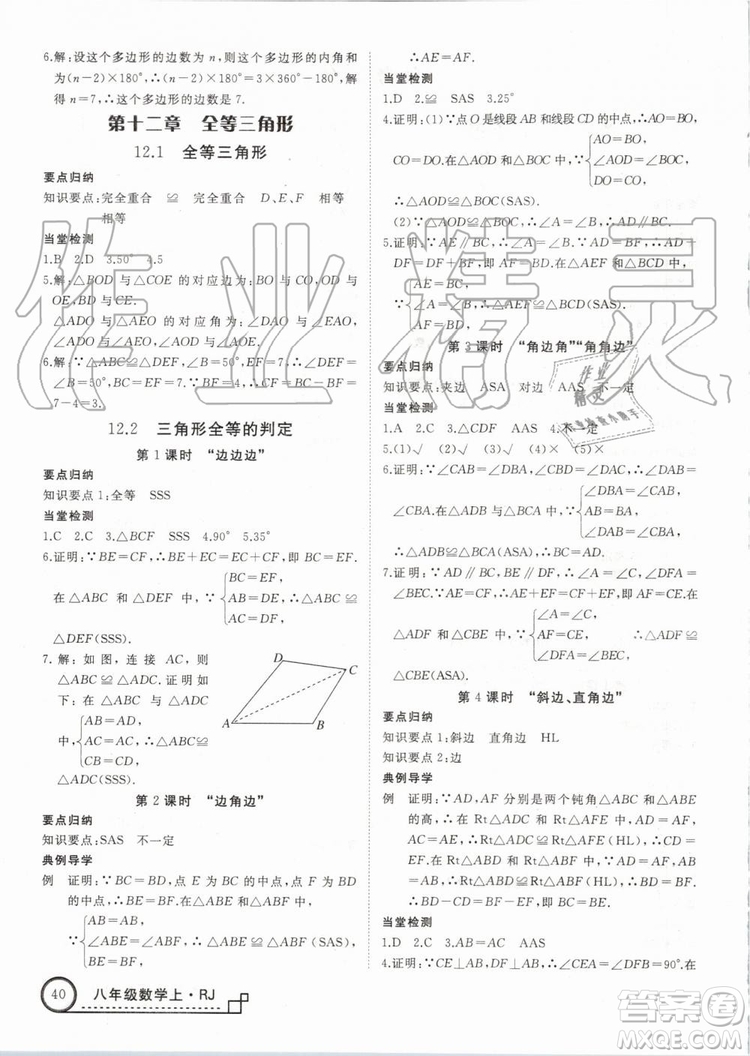 6.解:设这个多边形的边数为 n,则这个多边形的内角和
为(n-2)×180°,∴(n-2)×180°=3×360°-180°,解
得 n=7,∴这个多边形的边数是 7.
第十二章 全等三角形
12.1 全等三角形
要点归纳
知识要点:完全重合 ≌ 完全重合 D、E、F 相等
相等
当堂检测
1.B 2.D 3.50° 4.5
5.解:△BOD 与△COE 的对应边为:BO 与 CO,OD 与
OE,BD 与 CE.
△ADO 与△AEO 的对应角为:∠DAO 与∠EAO,
∠ADO 与∠AEO,∠AOD 与∠AOE.
6.解:∵△ABC≌△DEF,∠B=50°,BC=7,∴∠DEF
=∠B=50°,BC=EF=7,∴CF=BC-BF=
7-4=3.
12.2 三角形全等的判定
第 1 课时 “边边边”
要点归纳
知识要点 1:全等 SSS
当堂检测
1.C 2.C 3.△BCF SSS 4.90° 5.35°
6.证明:∵BE=CF,∴BE+EC=EC+CF,即 BC=EF.
在△ABC 和△DEF 中,∵{BC=EF, AB=DE, AC=DF, ∴△ABC≌
△DEF(SSS).
7.解:如图,连接 AC,则
△ABC≌△ADC.证明如
下:在△ABC 与△ADC
中,{AB=AD, AC=AC, CB=CD, ∴△ABC≌
△ADC(SSS).
D
C
A
B
第 2 课时 “边角边”
要点归纳
知识要点:SAS 不一定
典例导学
例 证明:∵BC=BD,点 E 为 BC 的中点,点 F 为 BD
的中点,∴BE=BF.在△ABE 和△ABF 中,
∵{AB=AB, ∠ABE=∠ABF, BE=BF, ∴△ABE≌△ABF(SAS),
40 八年级数学上·RJ
∴AE=AF.
当堂检测
1.D 2.≌ SAS 3.25°
4.证明:(1)∵点 O 是线段 AB 和线段 CD 的中点,∴AO=BO,
CO=DO.在△AOD 和△BOC 中,∵{AO=BO, ∠AOD=∠BOC, DO=CO,
∴△AOD≌△BOC(SAS).
(2)∵△AOD≌△BOC,∴∠A=∠B,∴AD∥BC.
5.证明:∵AE∥BC,∴∠A=∠B.∵AD=BF,∴AD+
DF=DF+BF,即 AF=BD.在△AEF 和△BCD 中,
∵{AE=BC, ∠A=∠B, AF=BD, ∴△AEF≌△BCD(SAS).
第 3 课时 “角边角”“角角边”
要点归纳
知识要点:夹边 ASA 对边 AAS 不一定
当堂检测
1.A 2.C 3.△CDF AAS 4.不一定
5.(1)√ (2)√ (3)√ (4)× (5)×
6.证明:∵∠CAB=∠DBA,∠CBD=∠DAC,∴∠DAB=
∠CBA.在△ADB 与△BCA 中,∵{∠CAB=∠DBA, AB=BA, ∠DAB=∠CBA,
∴△ADB≌△BCA(ASA),∴BC=AD.
7.证明:∵AD∥BC,BE∥DF,∴∠A=∠C,∠DFE=
∠BEC.∵AE=CF,∴AE+EF=CF+EF,即 AF=CE.
在△ADF 和△CBE 中,∵{∠A=∠C, AF=CE, ∠DFA=∠BEC, ∴△ADF≌
△CBE(ASA).
第 4 课时 “斜边、直角边”
要点归纳
知识要点 1:斜边 直角边 HL
知识要点 2:边
典例导学
例 证明:∵AD,AF 分别是两个钝角△ABC 和△ABE
的高,∴∠D=∠F=90°.在 Rt△ADC 与 Rt△AFE 中,
∵{AC=AE, AD=AF, ∴Rt△ADC≌Rt△AFE(HL),∴CD=
EF.在 Rt△ABD 和 Rt△ABF 中,∵{AB=AB, AD=AF,
∴Rt△ABD≌Rt△ABF(HL),∴BD=BF,
∴BD-CD=BF-EF,即 BC=BE.
当堂检测
1.D 2.C 3.AC=AD AAS
4.证明:∵CE⊥AB,DF⊥AB,∴∠AFD=∠CEB=90°.在
作业精灵